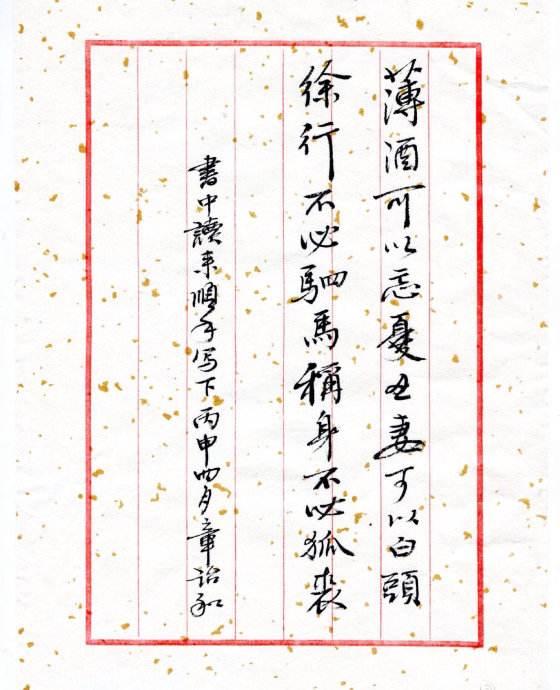 薄酒可以忘憂丑妻可以白頭
徐行不必駟馬稱身不必狐裘
書中讀来順手写下丙申四月章詒和